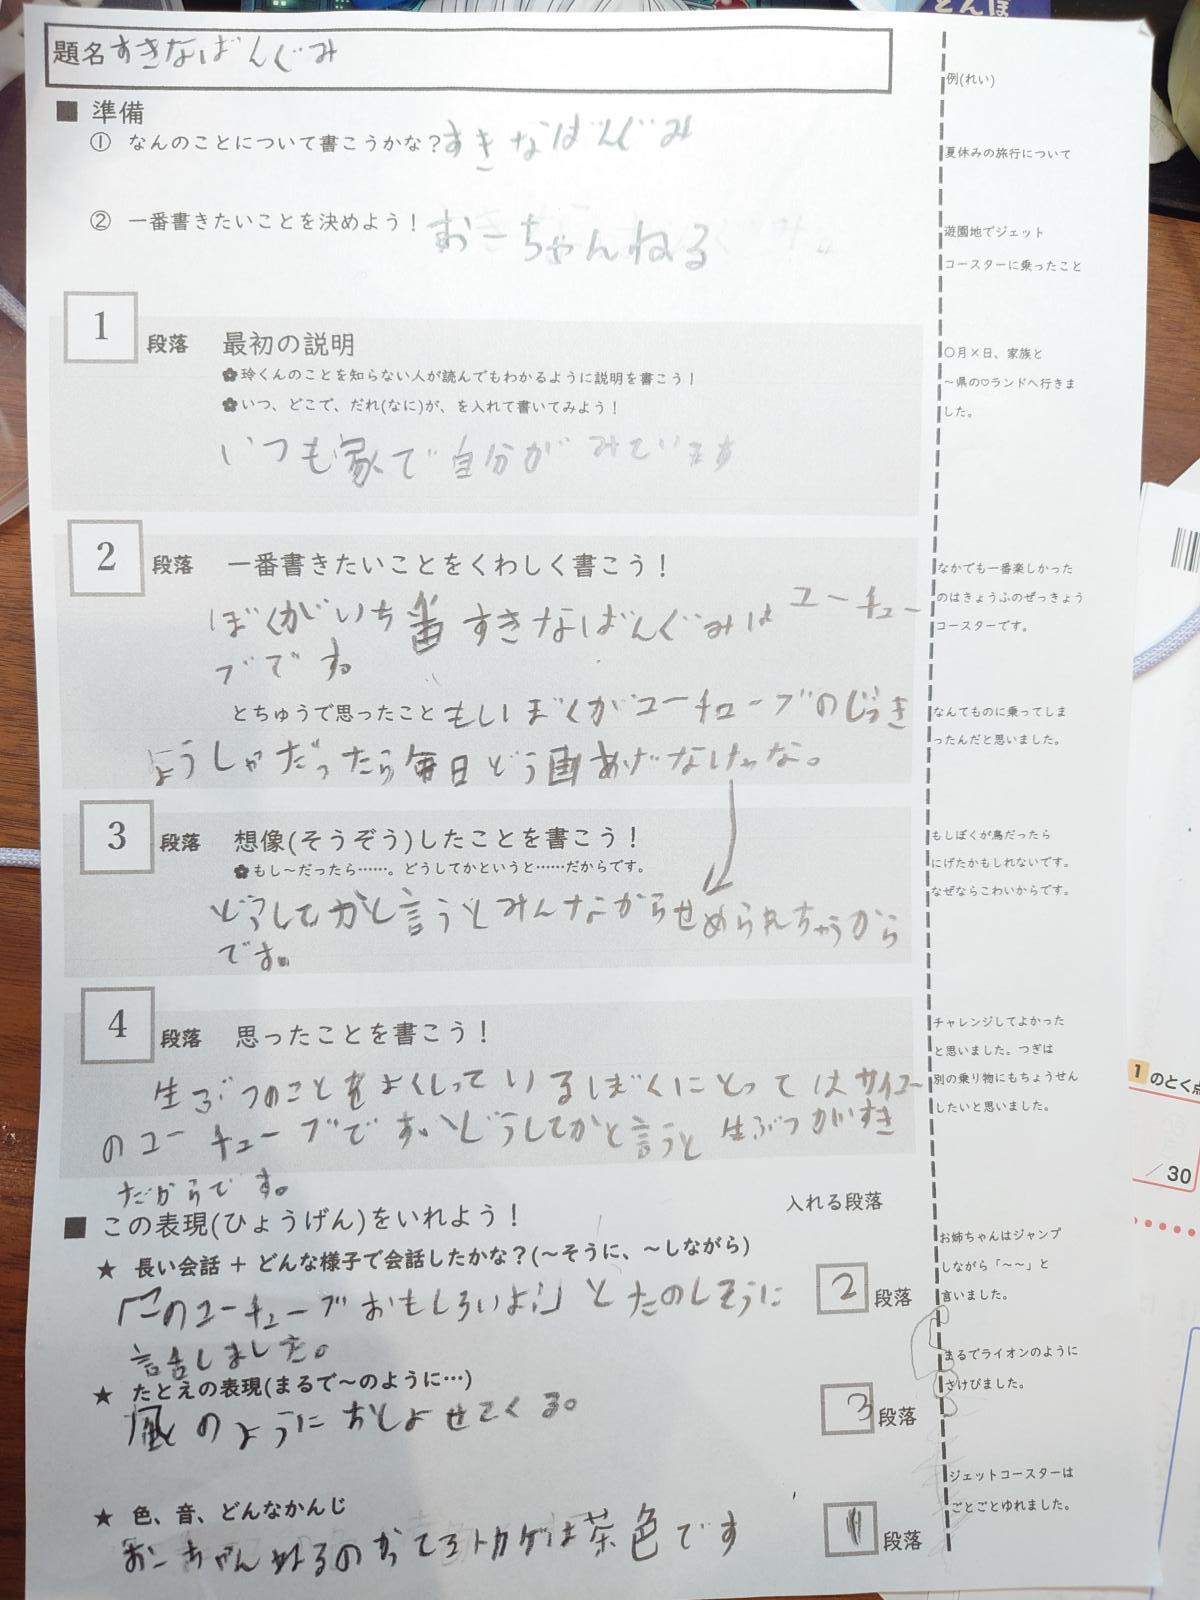 とんぼ
題名 すきなばんぐみ
例(れい)
■ 準備
① なんのことについて書こうかな？すきなばんぐみ
夏休みの旅行について
② 一番書きたいことを決めよう！おーちゃんねる
遊園地でジェット
コースターに乗ったこと
1 段落 最初の説明
✿玲くんのことを知らない人が読んでもわかるように説明を書こう！
✿いつ、どこで、だれ(なに)が、を入れて書いてみよう！
いつも家で自分がみています
〇月×日、家族と
～県の♡ランドへ行きま
した。
2 段落 一番書きたいことをくわしく書こう！
ぼくがいち番すきなばんぐみはユーチュー
ブです。
とちゅうで思ったこと もしぼくがユーチューブのじっき
ょうしゃだったら毎日どう画あげなけゃな。
なかでも一番楽しかった
のはきょうふのぜっきょう
コースターです。
なんてものに乗ってしま
ったんだと思いました。
3 段落 想像(そうぞう)したことを書こう！
✿もし～だったら……。どうしてかというと……だからです。
どうしてかと言うとみんなからせめられちゃうから
です。
もしぼくが鳥だったら
にげたかもしれないです。
なぜならこわいからです。
4 段落 思ったことを書こう！
生ぶつのことをよくしっているぼくにとってはサイコー
のユーチューブです。どうしてかと言うと生ぶつがすき
だからです。
チャレンジしてよかった
と思いました。つぎは
別の乗り物にもちょうせん
したいと思いました。
■ この表現(ひょうげん)をいれよう！
入れる段落
★ 長い会話 + どんな様子で会話したかな？(～そうに、～しながら)
「このユーチューブおもしろいよ！」とたのしそうに
話しました。
2 段落
お姉ちゃんはジャンプ
しながら「～～」と
言いました。
★ たとえの表現(まるで～のように…)
風のようにおしよせてくる。
3 段落
まるでライオンのように
さけびました。
★ 色、音、どんなかんじ
おーちゃんねるのかってるトカゲは茶色です
1 段落
ジェットコースターは
ごとごとゆれました。
1 のとく点
／30